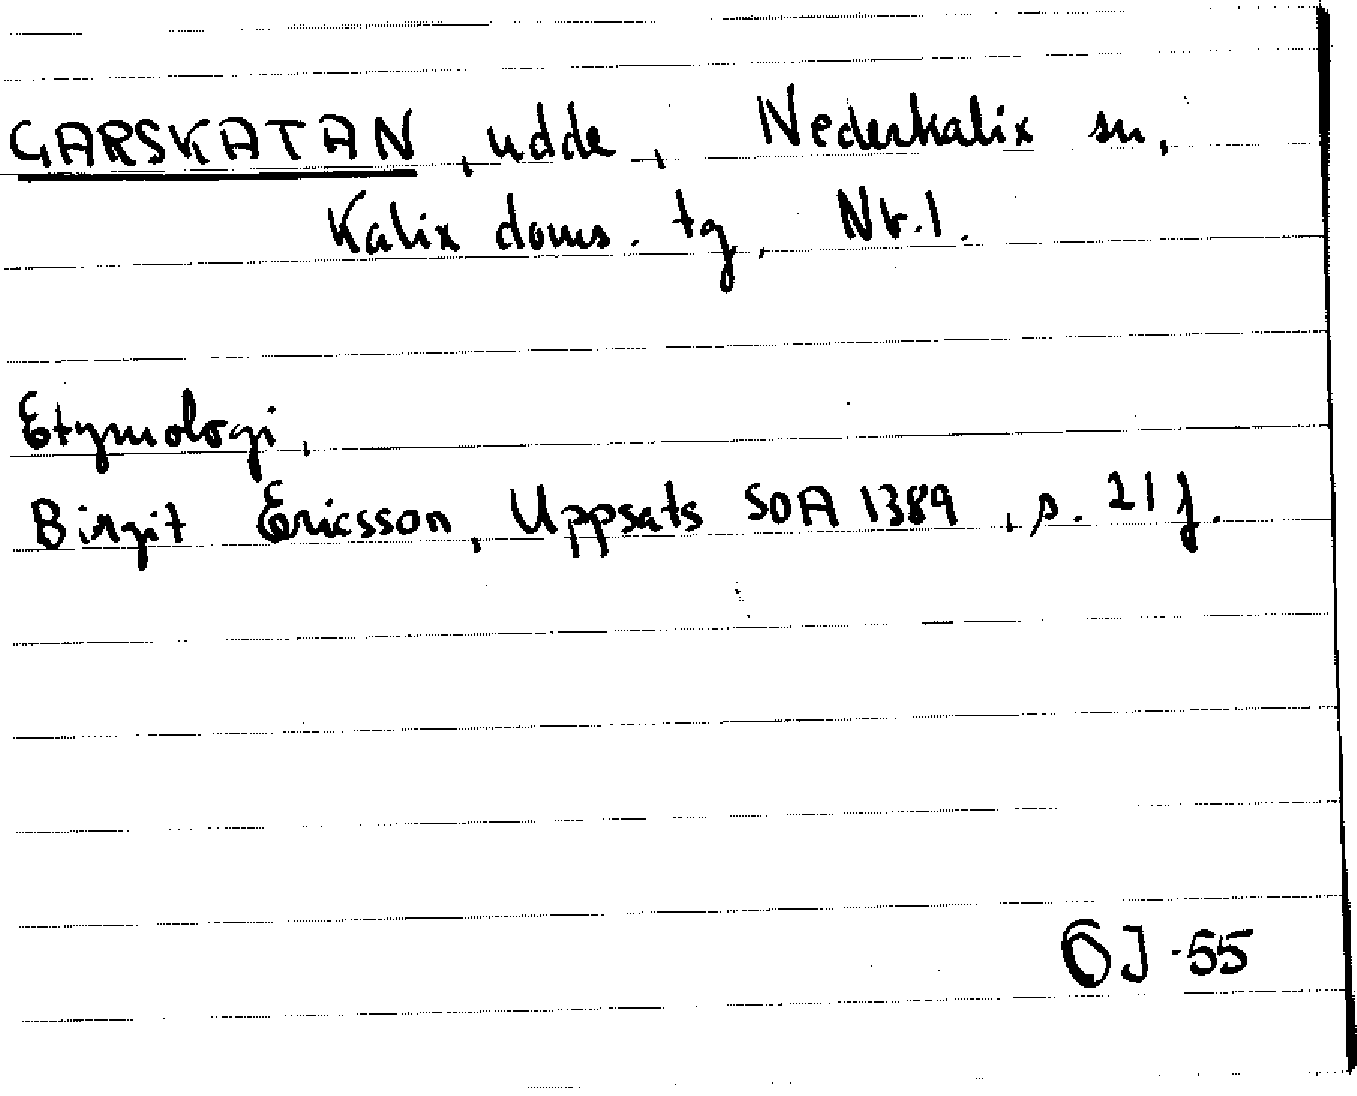 GARSKATAN, udde, Nederkalix sn,
Kalix doms. tg, Nb.l.
Etymologi,
Birgit Ericsson, Uppsats SOA 1389, s. 21 f.
ÖJ -55